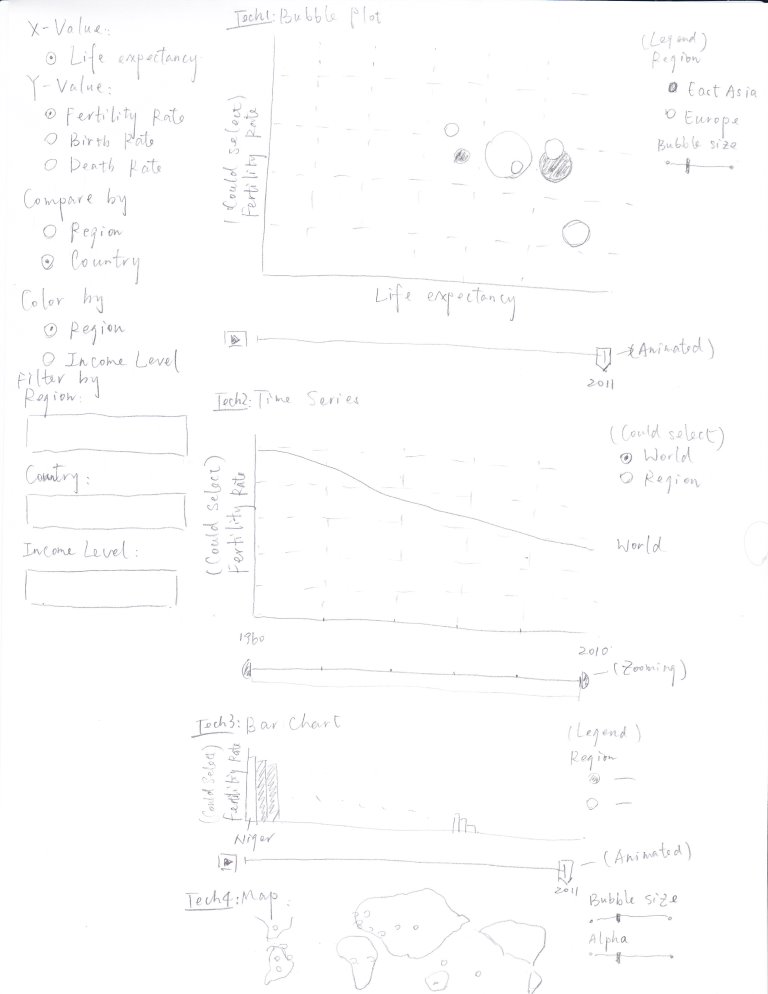 X-Value:
Life expectancy
Y-Value:
Fertility Rate
Birth Rate
Death Rate
Compare by
Region
Country
Color by
Region
Income Level
Filter by
Region:
Country:
Income Level:
Tech1: Bubble Plot
(Could select)
Fertility Rate
Life expectancy
(Legend)
Region
East Asia
Europe
Bubble size
(Animated)
2011
Tech2: Time Series
(Could select)
Fertility Rate
(Could select)
World
Region
World
1960
2010
(Zooming)
Tech3: Bar Chart
(Could Select)
Fertility Rate
Niger
(Legend)
Region
(Animated)
2011
Tech4: Map
Bubble size
Alpha